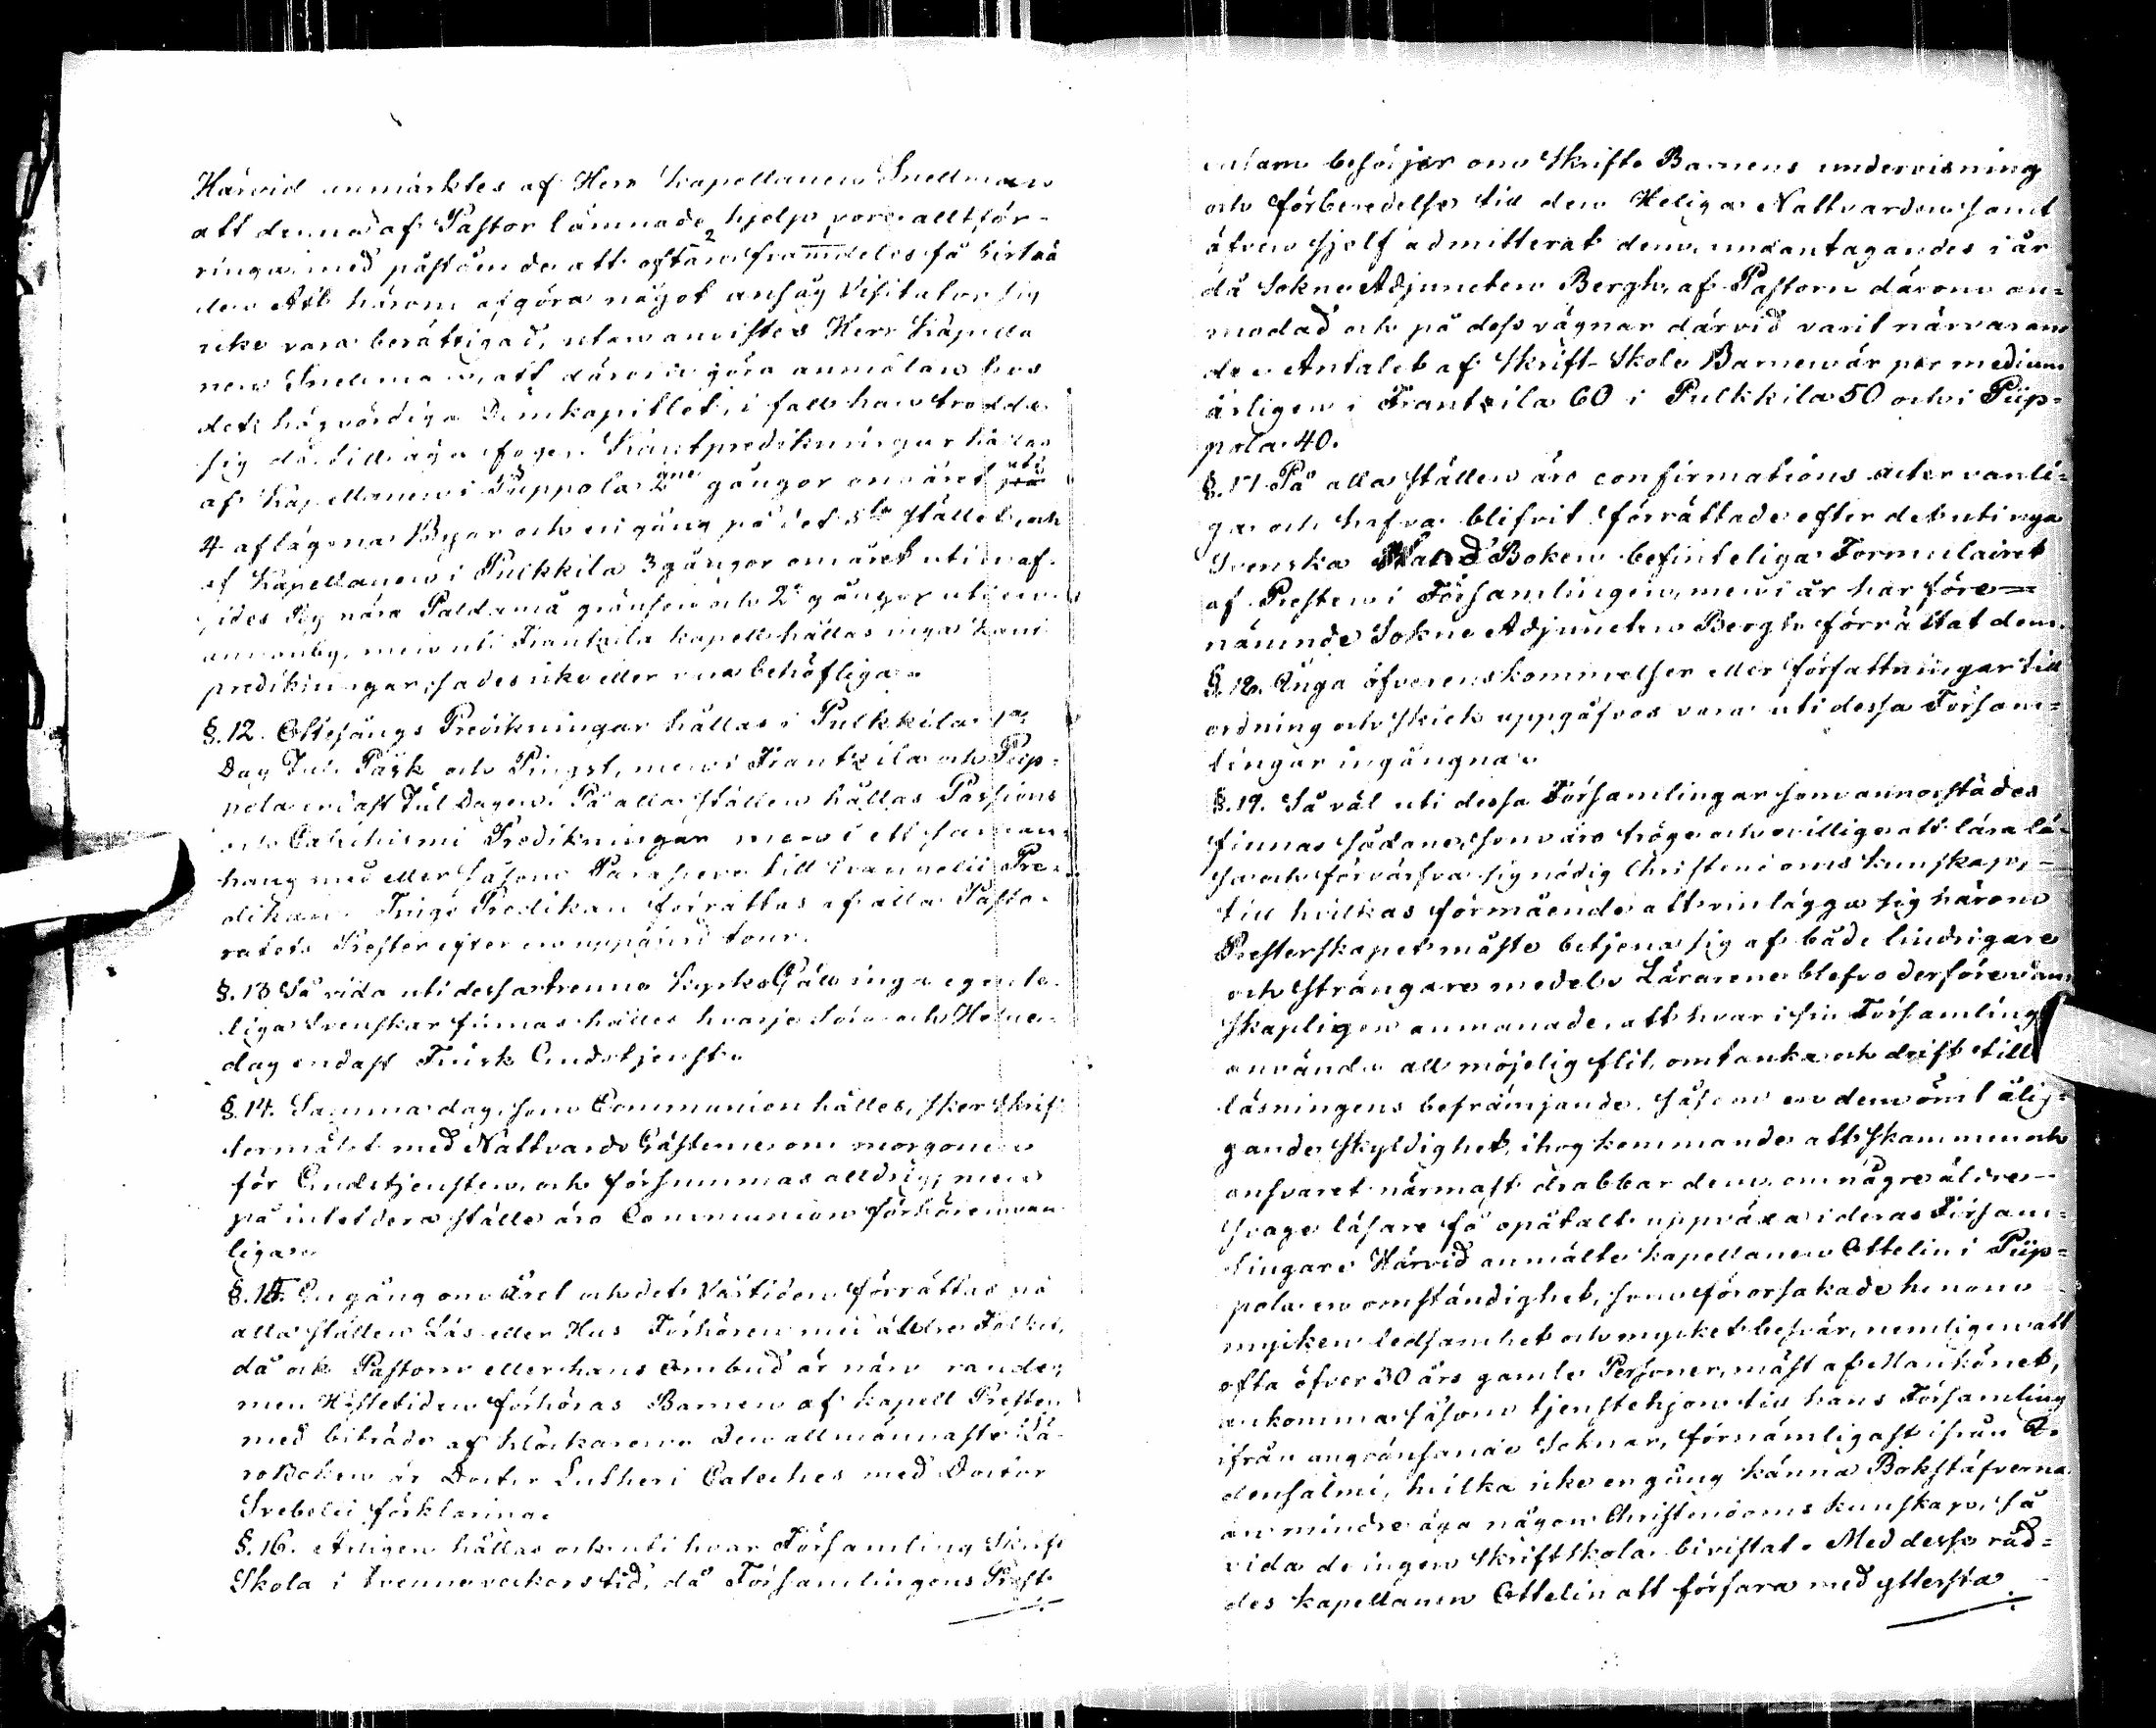 Härvid anmärktes af Herr Kapellanen Snellman
att denna af Pastor lämnade hjelp vore allt för-
ringa, med påstående att oftare framdeles få biträ
des Att härom afgöra något ansåg Visitator sig
icke vara berättigad, utan anvistes Herr Kapella
nen Snellman, att därom göra anmälan hos
det högvördiga Domkapitlet, i fall han trodde
sig därtill äga fog. Kantpredikningar hållas
af Kapellanen i Pippola 2ne gångor om året uti
4 aflägsna Byar och en gång på det 5te stället, och
af Kapellanen i Pulkkila 3 gångor om året uti en af-
sides By nära Paldamå gränsen och 2e gångor uti en
annan by, men uti Frantzila kapell hållas inga kant
predikningar, sades icke eller vara behöfliga.
§. 12. Ottesångs Predikningar hållas i Pulkkila 1a
Dag Jul, Påsk och Pingst, men i Frantzila och Piip-
pola endast Jul Dagen. På alla ställen hållas Passions
och Catechismi Predikningar men i ett samman-
hang med eller såsom till Evangelii Pre-
dikan. Tings Predikan förrättas af alla Pasto-
ratets Prester efter en uppgjord tour.
§. 13 Så vida uti dessa trenne Kyrko Gäll inga egente-
liga Svenskar finnas hålles hvarje Sön- och Helge-
dag endast Finsk Gudstjenst.
§. 14. Samma dag, som Communion hålles, sker Skrif-
termålet med Nattvards Gästerne om morgonen
för Gudstjensten, och försummas alldrig, men
på intetdera ställe äro Communion förhören van
liga.
§. 15. En gång om Året och det Vårtiden förrättas på
alla ställen Läs- eller Hus Förhören med äldre Folket,
då ock Pastorn eller hans ombud är närvarande,
men Hösttiden förhöras Barnen af kapell Presten
med biträde af klockarena. Den allmännaste Lä-
roboken är Doctor Lutheri Cateches med Doctor
Svebelii förklaring.
§. 16. Årligen hållas och uti hvar Församling Skrift
Skola i tvenne veckors tid, då Församlingens Prest
endam besörjer om Skrifte Barnens undervisning
och förberedelse till den Heliga Nattvarden samt
äfven sjelf admitterat dem, undantagandes i år
då Sokne Adjuncten Bergh, af Pastorn därom an-
modad och på dess vägnar därvid varit närvaran
de. Antalet af Skrift-Skole Barnen är per medium
årligen i Frantzila 60 i Pulkkila 50 och i Piip-
pola 40.
§. 17 På alla ställen äro confirmations acter vanli-
ga och hafva blifvit förrättade efter det uti nya
Svenska Hand Boken befinteliga Formulairet
af Presten i Församlingen, men i år har före-
nämnde Sokne Adjuncten Bergh förrättat dem.
§. 18. Inga öfverenskommelser eller författningar till
ordning och skick uppgåfvos vara uti dessa Försam-
lingar ingångna.
§. 19. Så väl uti dessa Församlingar som annorstädes
finnas sådane, som äro tröge och ovillige att lära lä-
sa och förvärfva sig nödig Christendoms kunskap,
till hvilkas förmående att vinlägga sig härom
Presterskapet måste betjena sig af både lindrigare
och strängare medel. Lärarene blefvo derföre vän-
skapligen anmanade, att hvar i sin Församling
använda all möjelig flit, omtanka och drift till
läsningens befrämjande, såsom en dem ömt ålig-
gande skyldighet, ihog kommande att skammen och
ansvaret närmast drabbar dem, om någre äldre
svage läsare få opåtalt uppväxa i deras Försam-
lingar. Härvid anmälte kapellanen Ottelin i Piip-
pola en omständighet, som förorsakade honom
mycken ledsamhet och mycket besvär, nemligen att
ofta öfver 30 års gamle Personer, mäst af Mankönet,
ankomma såsom tjenstehjon till hans Församling
ifrån angränsande Soknar, förnämligast ifrån I-
densalmi, hvilka icke en gång känna Bokstäfverna
än mindre äga någon Christendoms kunskap, så
vida de ingen Skriftskola bivistat. Med desse råd-
des kapellanen Ottelin att förfara med yttersta